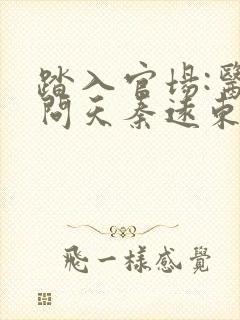 踏入官場:醫
問天秦遠東
飛一樣感覺